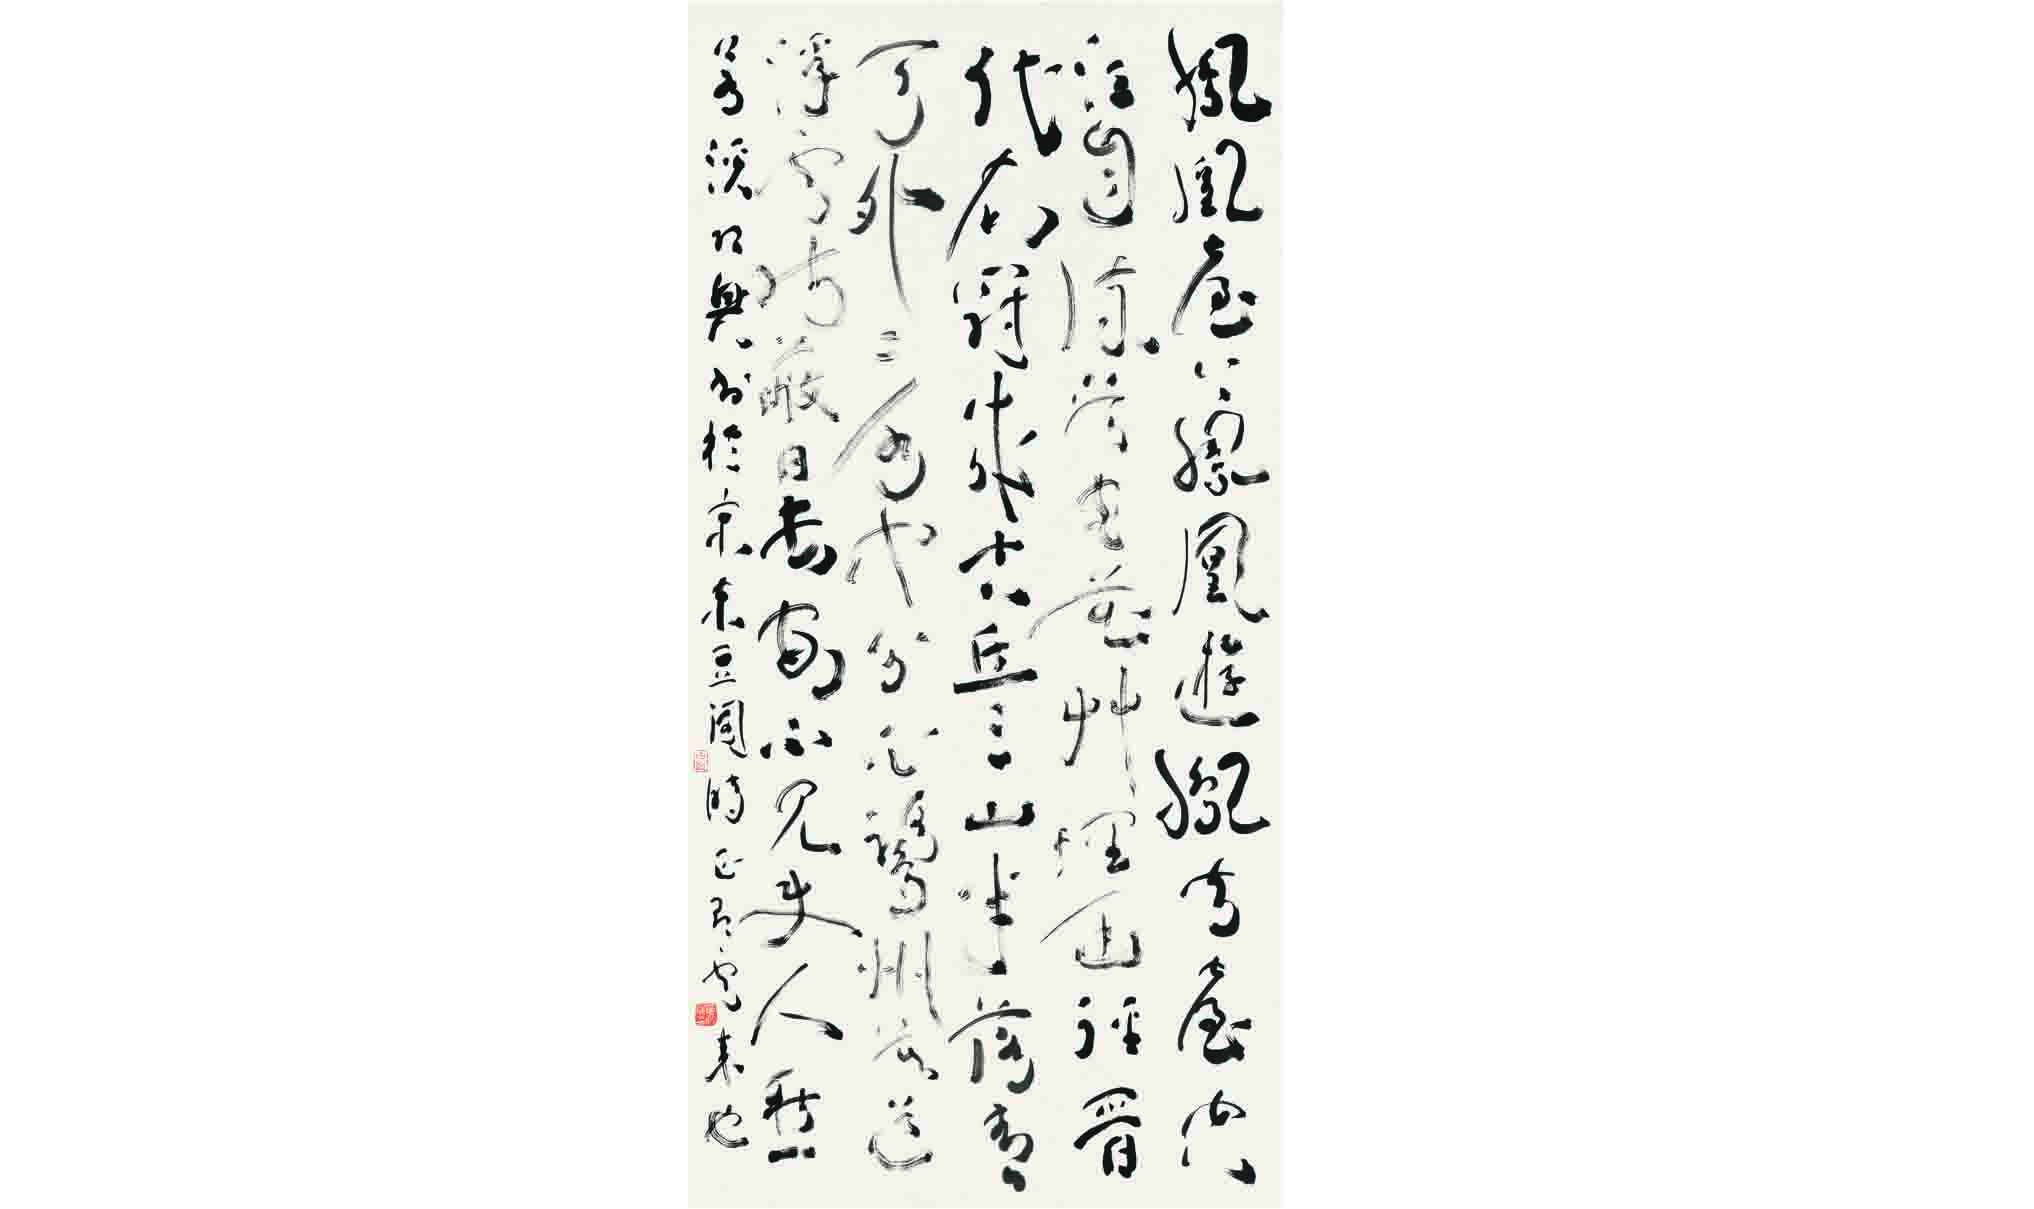 鳳凰臺上鳳凰遊鳳去臺空
江自流吳宮花草埋幽徑晉
代衣冠成古丘三山半落青
天外二水中分白鷺洲總為
浮雲能蔽日長安不見使人愁
若溪興書於京東豆閣時正雪來也